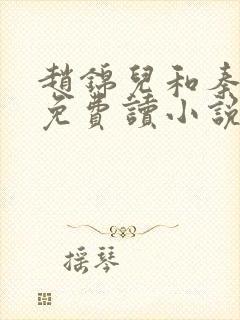 趙錦兒和秦
免費讀小說
摇琴